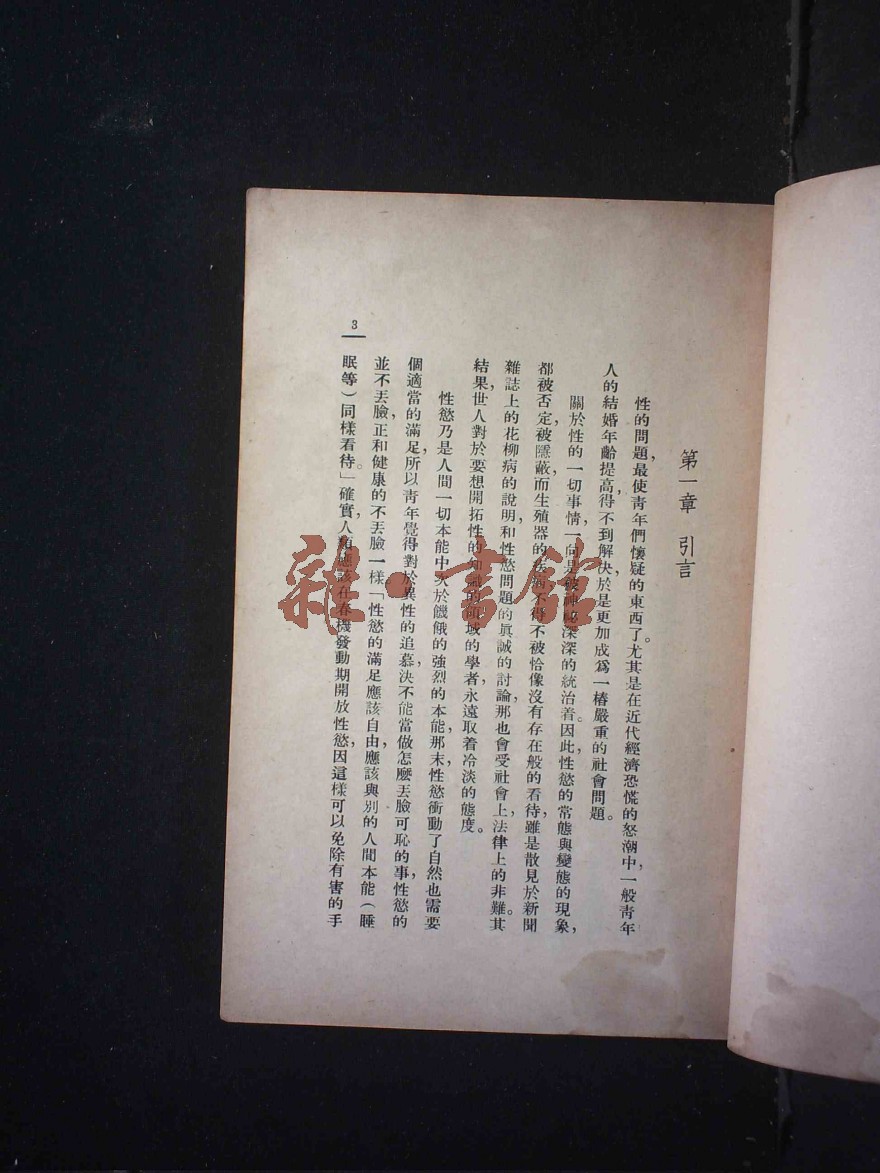 第一章 引言
性的問題，最使靑年們懷疑的東西了。尤其是在近代經濟恐慌的怒潮中，一般靑年
人的結婚年齡提高，得不到解決，於是更加成爲一樁嚴重的社會問題。
關於性的一切事情，一向是被神秘深深的統治着。因此，性慾的常態與變態的現象，
都被否定，被隱蔽，而生殖器的疾病不得不被恰像沒有存在般的看待，雖是散見於新聞
雜誌上的花柳病的說明和性慾問題的眞誠的討論，那也會受社會上，法律上的非難。其
結果，世人對於要想開拓性的知識的領域的學者，永遠取着冷淡的態度。
性慾乃是人間一切本能中次於饑餓的強烈的本能，那末，性慾衝動了自然也需要
個適當的滿足，所以靑年覺得對於異性的追慕，決不能當做怎麼丟臉可恥的事，性慾的
並不丟臉，正和健康的不丟臉一樣。「性慾的滿足應該自由，應該與別的人間本能（睡
眠等）同樣看待。」確實，人類應該在春機發動期開放性慾，因這樣可以免除有害的手
3
雜·書館